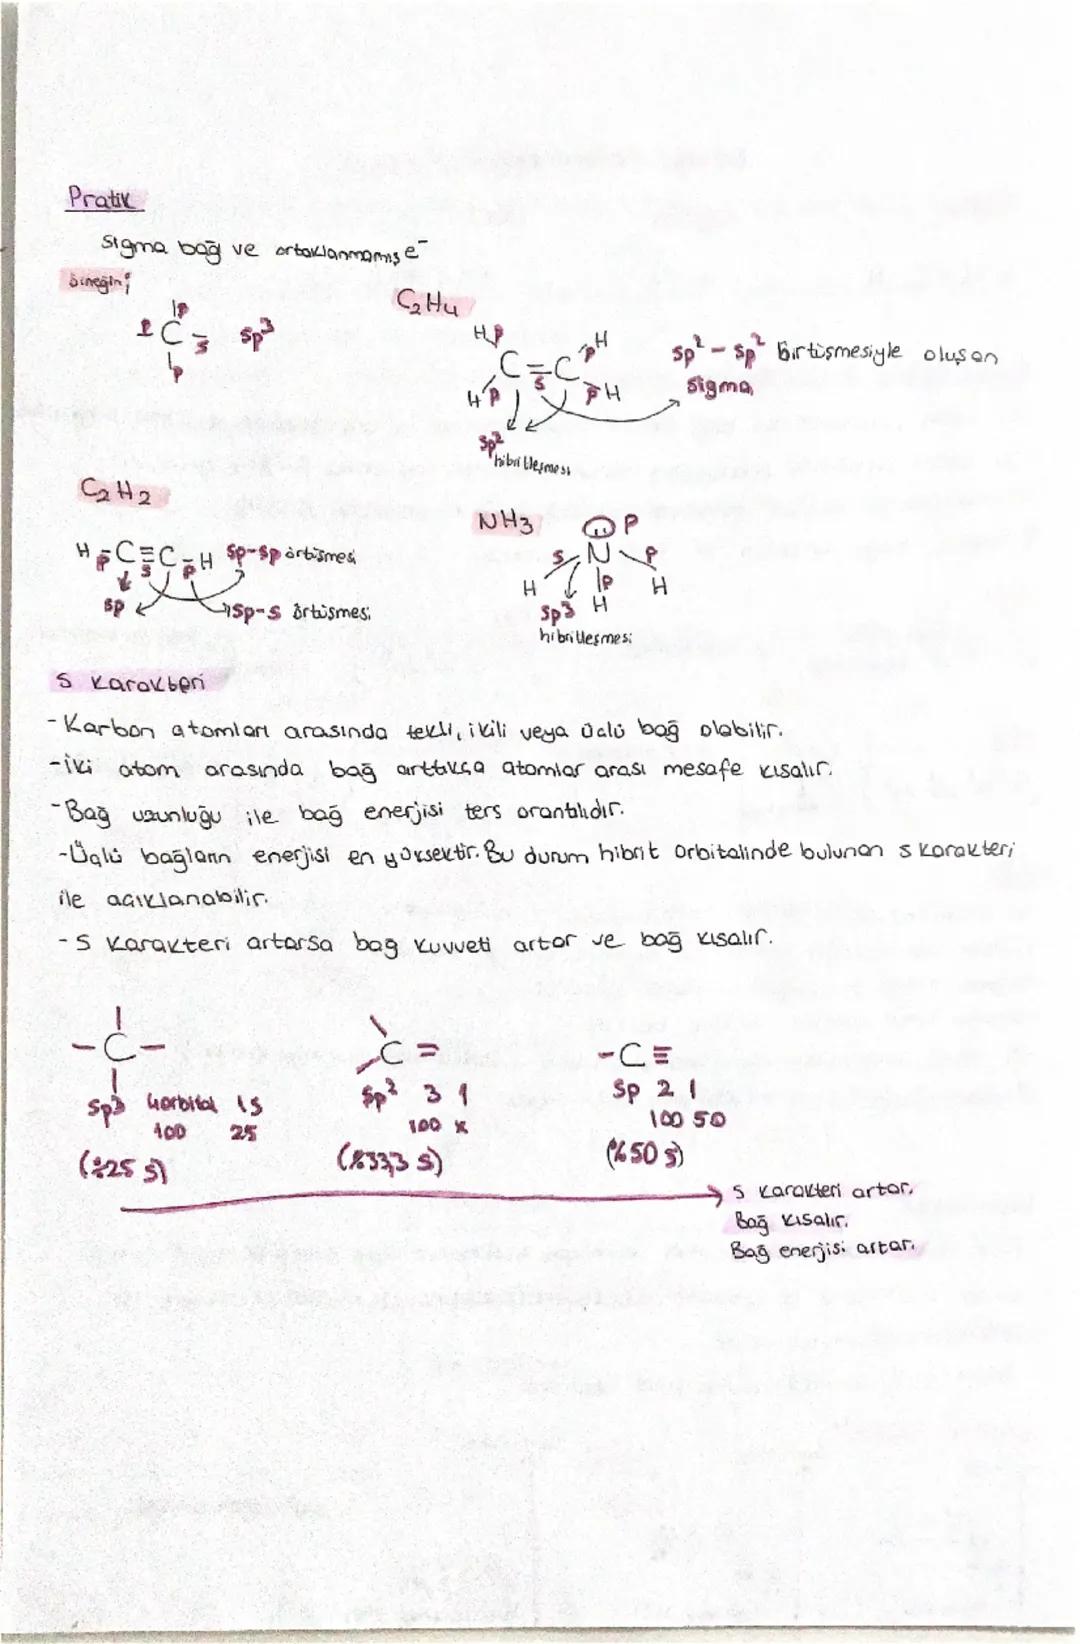 Pratik
Sigma bağ ve ortaklanmamış e⁻
örneğin;
p
p C s sp³
p
C₂H₄
H p p H
C = C
s
H p p H
sp²
hibritleşmesi
sp² - sp² örtüşmesiyle oluşan
sigma
C₂H₂
H - C ≡ C - H
p s p
sp
sp-sp örtüşmesi
sp-s örtüşmesi
NH3
p
s N p
p
H H H
sp3
hibritleşmesi
S Karakteri
- Karbon atomları arasında tekli, ikili veya üçlü bağ olabilir.
- iki atom arasında bağ arttıkça atomlar arası mesafe kısalır.
- Bağ uzunluğu ile bağ enerjisi ters orantılıdır.
- Üçlü bağların enerjisi en yüksektir. Bu durum hibrit orbitalinde bulunan s karakteri
ile açıklanabilir.
- S karakteri artarsa bağ kuvveti artar ve bağ kısalır.
- C -
sp3 4orbital 1s
100 25
(%25 s)
C =
sp² 3 1
100 x
(%33,3 s)
- C ≡
sp 2 1
100 50
(%50 s)
s karakteri artar.
Bağ kısalır.
Bağ enerjisi artar.